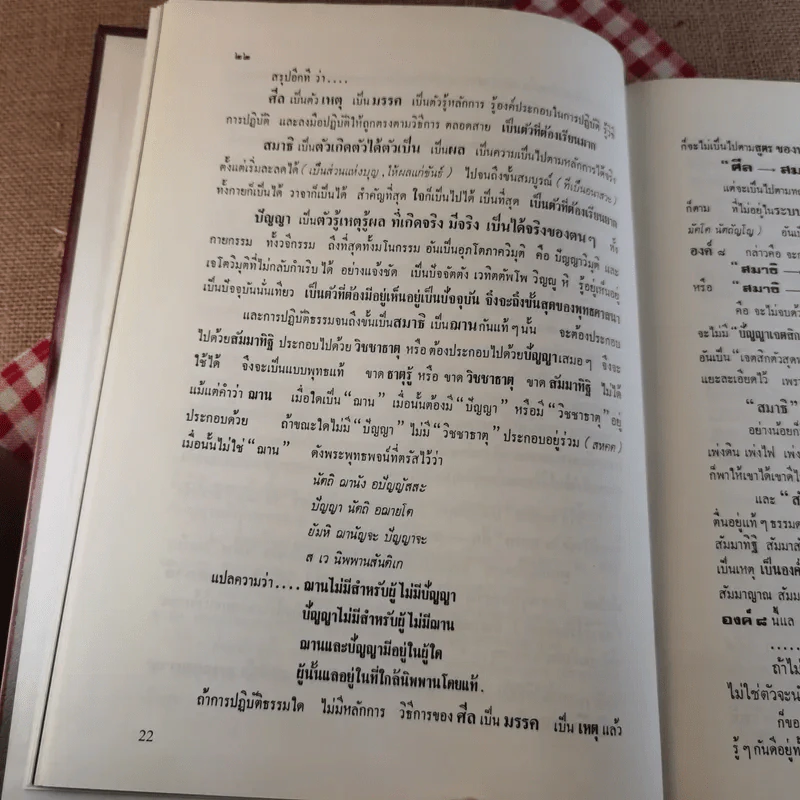 ๒๒
สรุปอีกที ว่า....
ศีล เป็นตัว เหตุ เป็น มรรค เป็นตัวรู้หลักการ รู้องค์ประกอบในการปฏิบัติ รู้วิธี
การปฏิบัติ และลงมือปฏิบัติให้ถูกตรงตามวิธีการ ตลอดสาย เป็นตัวที่ต้องเรียนมาก
สมาธิ เป็นตัวเกิดตัวได้ตัวเป็น เป็นผล เป็นความเป็นไปตามหลักการได้จริง
ตั้งแต่เริ่มละลดได้ (เป็นส่วนแห่งบุญ, ให้ผลแก่ขันธ์) ไปจนถึงขั้นสมบูรณ์ (ที่เป็นอนาสวะ)
ทั้งกายก็เป็นได้ วาจาก็เป็นได้ สำคัญที่สุด ใจก็เป็นไปได้ เป็นที่สุด เป็นตัวที่ต้องเรียนมาก
ปัญญา เป็นตัวรู้เหตุรู้ผล ที่เกิดจริง มีจริง เป็นได้จริงของตนๆ ทั้ง
กายกรรม ทั้งวจีกรรม ถึงที่สุดทั้งมโนกรรม อันเป็นอุภโตภาควิมุติ คือ ปัญญาวิมุติ และ
เจโตวิมุติที่ไม่กลับกำเริบได้ อย่างแจ้งชัด เป็นปัจจัตตัง เวทิตัพโพ วิญญู หิ รู้อยู่เห็นอยู่
เป็นปัจจุบันนั่นเทียว เป็นตัวที่ต้องมีอยู่เห็นอยู่เป็นปัจจุบัน จึงจะถึงขั้นสุดของพุทธศาสนา
และการปฏิบัติธรรมจนถึงขั้นเป็นสมาธิ เป็นฌานกันแท้ๆ นั้น จะต้องประกอบ
ไปด้วยสัมมาทิฐิ ประกอบไปด้วย วิชชาธาตุ หรือต้องประกอบไปด้วยปัญญาเสมอๆ จึงจะ
ใช้ได้ จึงจะเป็นแบบพุทธแท้ ขาด ธาตุรู้ หรือ ขาด วิชชาธาตุ ขาด สัมมาทิฐิ ไม่ได้
แม้แต่คำว่า ฌาน เมื่อใดเป็น “ฌาน” เมื่อนั้นต้องมี “ปัญญา” หรือมี “วิชชาธาตุ” อยู่
ประกอบด้วย ถ้าขณะใดไม่มี “ปัญญา” ไม่มี “วิชชาธาตุ” ประกอบอยู่ร่วม (สหคต)
เมื่อนั้นไม่ใช่ “ฌาน” ดังพระพุทธพจน์ที่ตรัสไว้ว่า
นัตถิ ฌานัง อปัญญัสสะ
ปัญญา นัตถิ อฌายโต
ยัมหิ ฌานัญจะ ปัญญาจะ
ส เว นิพพานสันติเก
แปลความว่า.... ฌานไม่มีสำหรับผู้ ไม่มีปัญญา
ปัญญาไม่มีสำหรับผู้ ไม่มีฌาน
ฌานและปัญญามีอยู่ในผู้ใด
ผู้นั้นแลอยู่ในที่ใกล้นิพพานโดยแท้.
ถ้าการปฏิบัติธรรมใด ไม่มีหลักการ วิธีการของ ศีล เป็น มรรค เป็น เหตุ แล้ว
22
ก็จะไม่เป็นไปตามสูตร ของ
“ศีล — สม
แต่จะเป็นไปตาม
ก็ตาม ที่ไม่อยู่ในระบบ
มัคโค นัตถัญโญ) อันเป็
องค์ ๘ กล่าวคือ จะก
“สมาธิ —
หรือ “สมาธิ —
คือ จะไม่จบด้ว
จะไม่มี “ปัญญาเจตสิก
อันเป็น “เจตสิกตัวสุดท
แยะละเอียดไว้ เพรา
“สมาธิ”
อย่างน้อยก็
เพ่งดิน เพ่งไฟ เพ่ง
ก็พาให้เขาได้เขาดีไ
และ “ส
ตื่นอยู่แท้ๆ ธรรมด
สัมมาทิฐิ สัมมาส
เป็นเหตุ เป็นองค์
สัมมาญาณ สัมม
องค์ ๘ นี้แล
......
ถ้าไม่
ไม่ใช่ตัวจะนั
ก็ของ
รู้ๆ กันดีอยู่ทั้